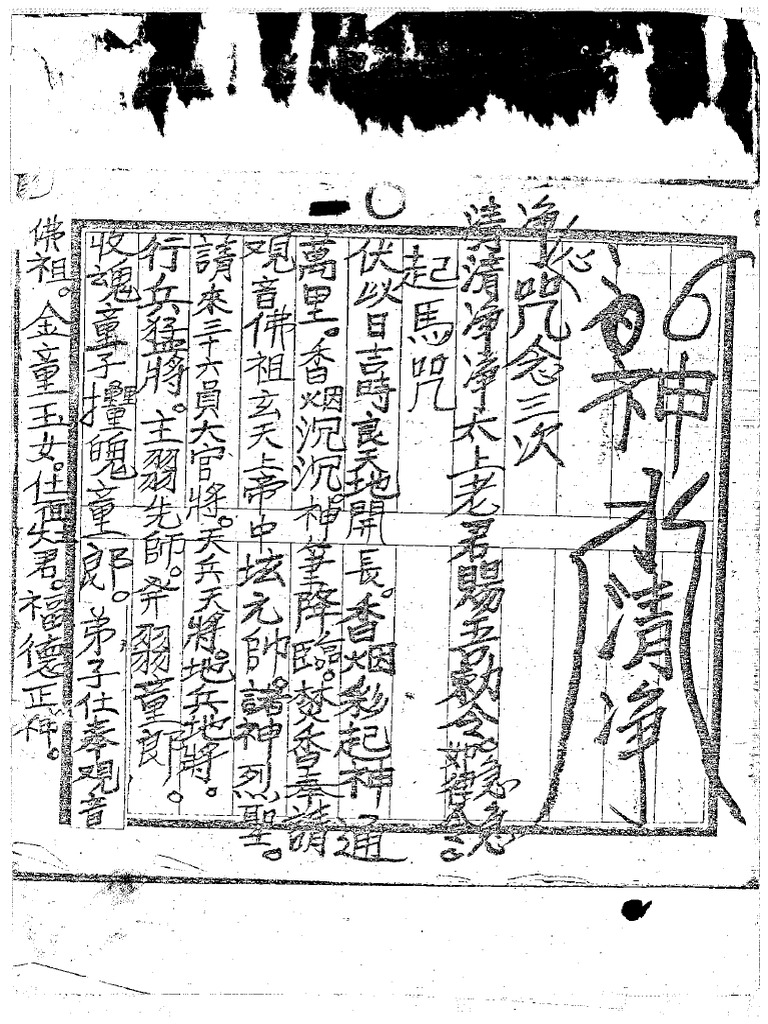 神水清净
神
净心咒念三次
清清净净太上老君賜吾敕令。急急
起馬咒
伏以日吉時良天地開長。香烟彩起神通
萬里。香烟沉沉。神筆降臨。焚香奉請
观音佛祖玄天上帝中坛元帥。諸神烈聖。
請來三十六員大官將。天兵天將。地兵地將。
行兵猛將。主羽先師。發羽童郎。
收魂童子魄童郎。弟子仕奉观音
佛祖。金童玉女。仕面灶君。福德正神。
一〇